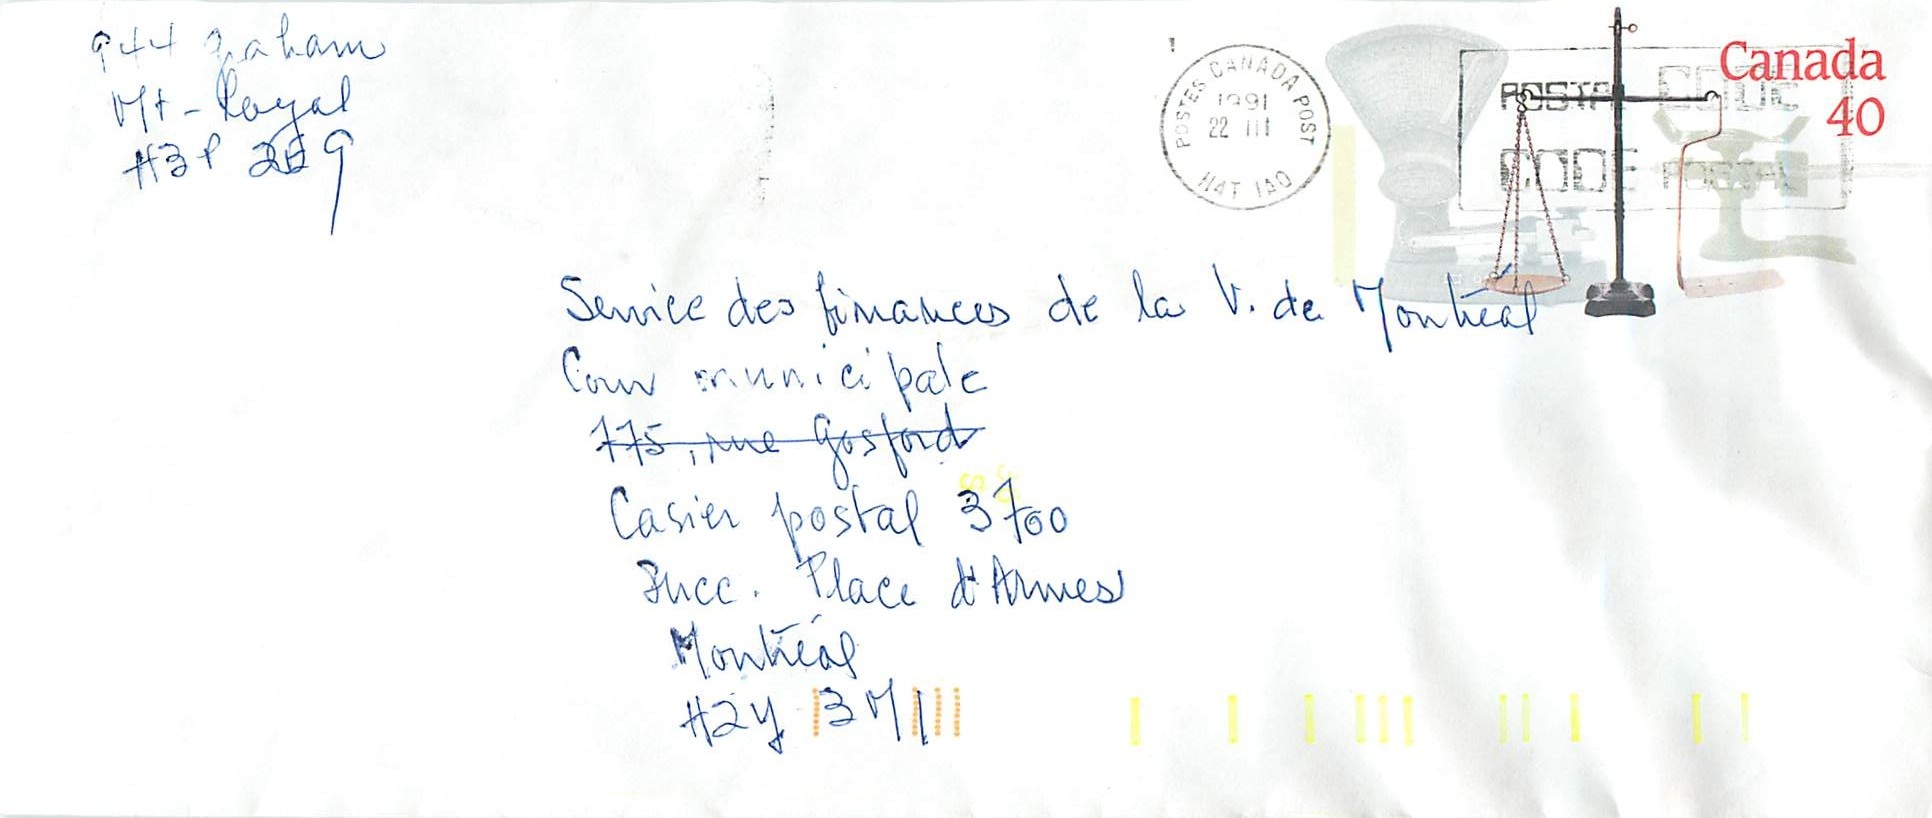 944 Graham
Mt-Royal
H3P 2E9
POSTES CANADA POST
1991
22 III
H4T 1A0
POSTAL CODE
CODE POSTAL
Canada
40
Service des finances de la V. de Montréal
Cour municipale
775, rue Gosford
Casier postal 3700
Succ. Place d'Armes
Montréal
H2Y 3M1